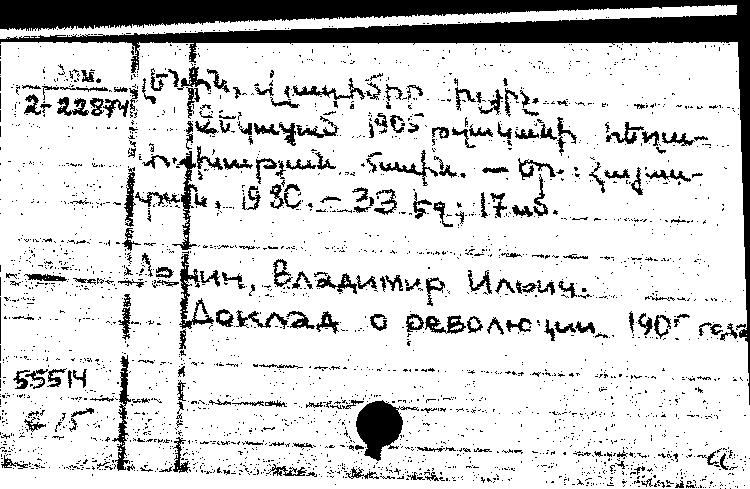 Арм.
2-22874
Լենին, Վլադիմիր Իլյիչ.
Զեկուցում 1905 թվականի հեղա-
փոխության մասին. — Եր.: Հայաս-
տան, 1980. — 33 եզ; 17 սմ.
Ленин, Владимир Ильич.
Доклад о революции 1905 года
55514
а